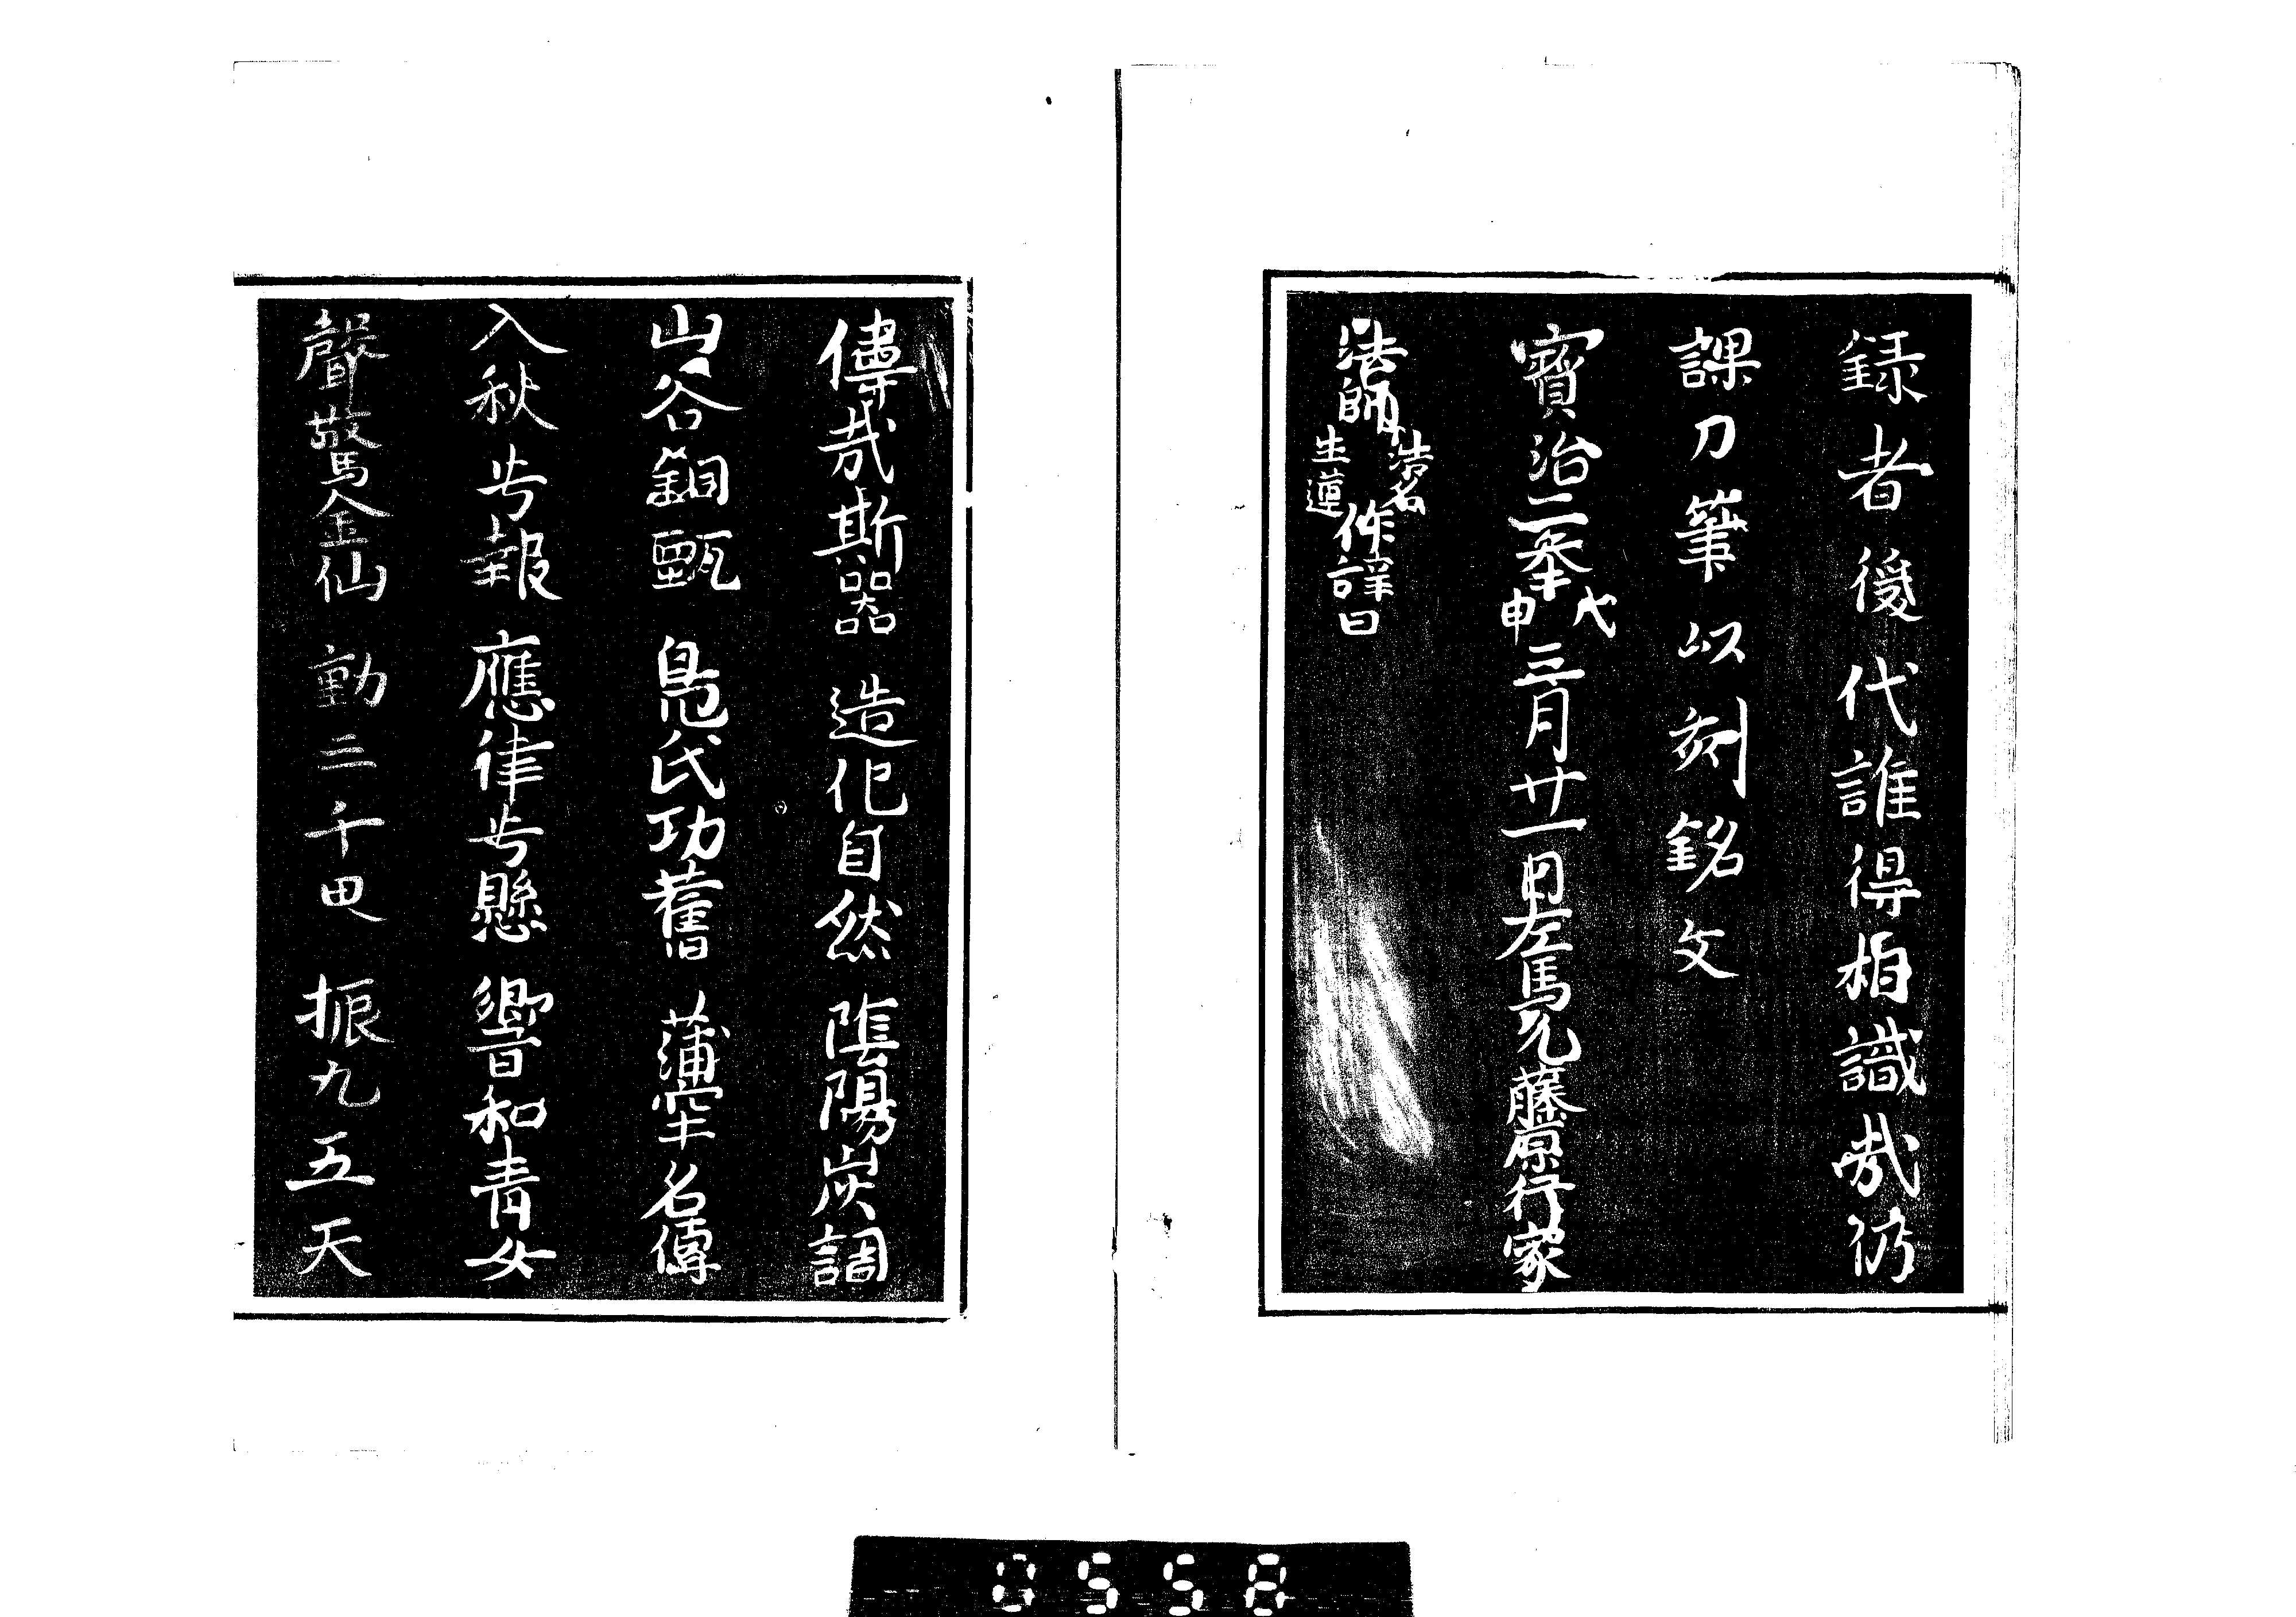 録者後代誰得相識哉仍
課刀筆以刻銘文
寳治二季戊申三月廿一日左馬允藤原行家
法師法名生蓮作詳曰
偉哉斯器 造化自然 陰陽炭調
山谷銅甄 鳧氏功舊 蒲牢名傳
入秋号報 應律号懸 響和青女
聲驚金仙 動三千界 振九五天
0558